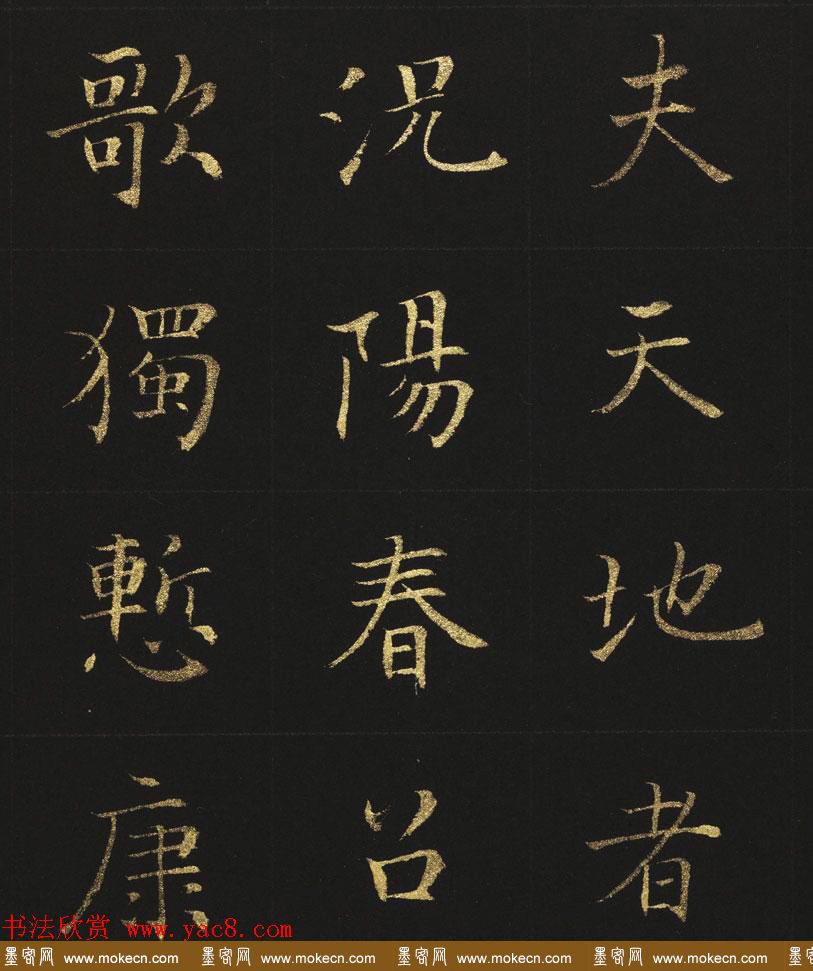 夫天地者
況陽春召
歌獨慙康
书法欣赏 www.yac8.com
墨客网 www.mokecn.com 墨客网 www.mokecn.com 墨客网 www.mokecn.com 墨客网 www.mokecn.com